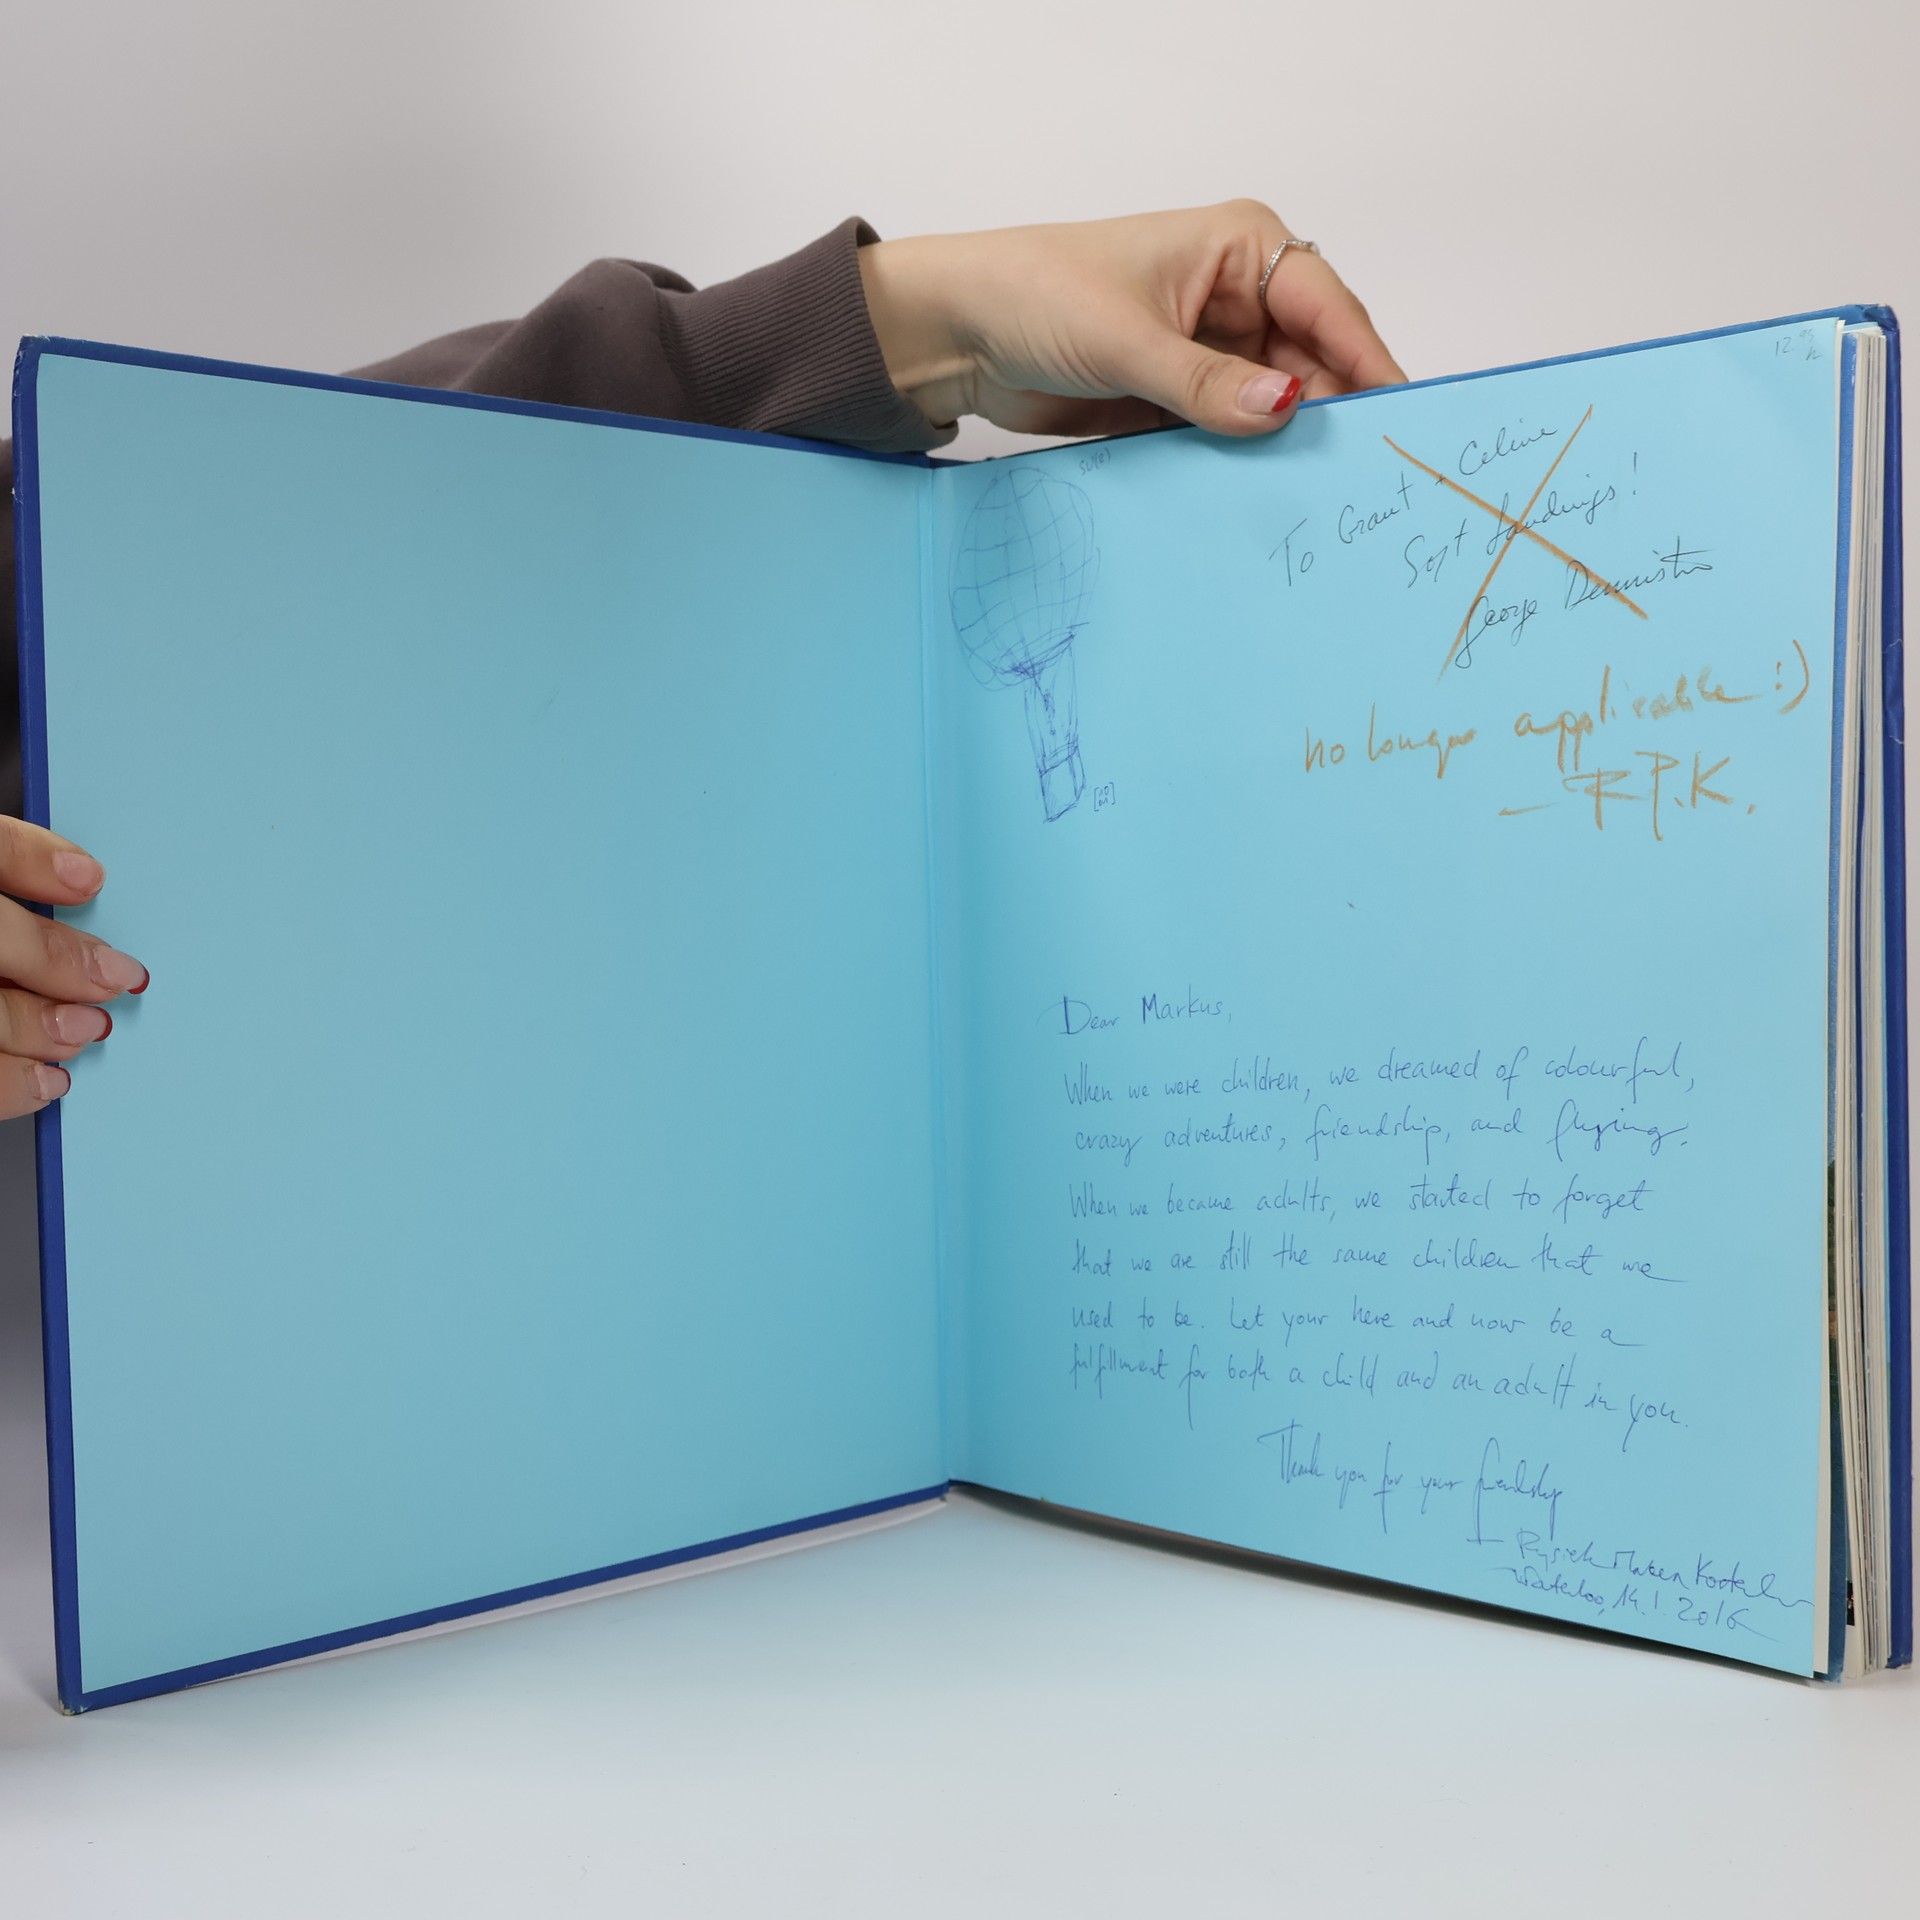 12.95
To Grant + Celine
Soft Landings!
George Denniston
no longer applicable :)
— R.P.K.
Dear Markus,
When we were children, we dreamed of colourful,
crazy adventures, friendship, and flying.
When we became adults, we started to forget
that we are still the same children that we
used to be. Let your here and now be a
fulfillment for both a child and an adult in you.
Thank you for your friendship
Waterloo, 14.1.2016